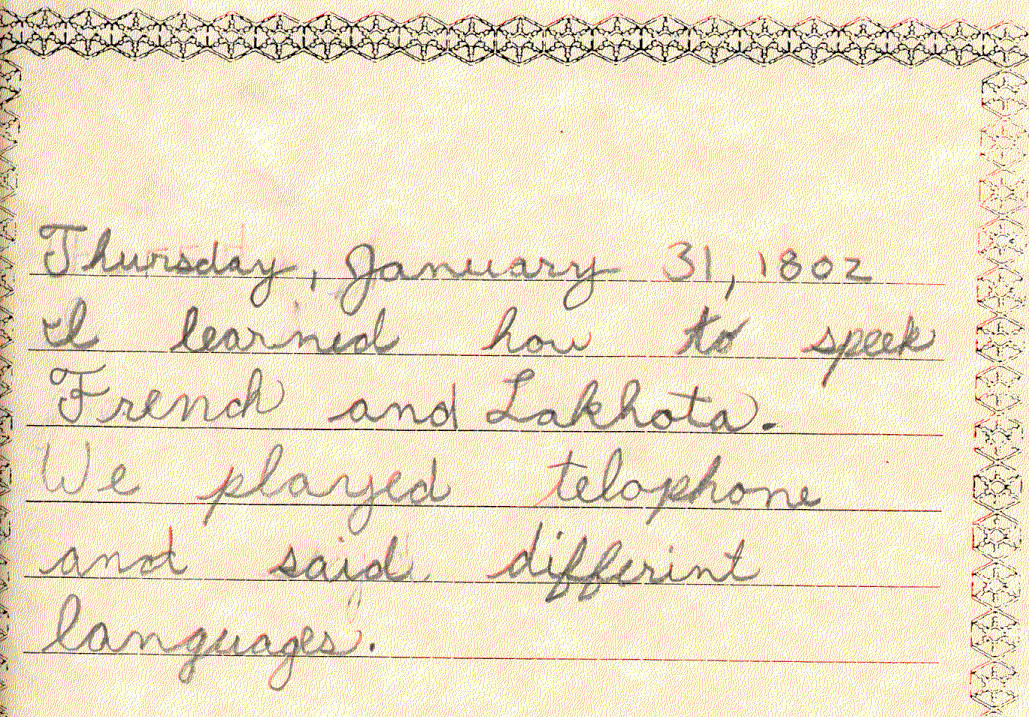 Thursday, January 31, 1802
I learned how to speek
French and Lakhota.
We played telaphone
and said differint
languages.